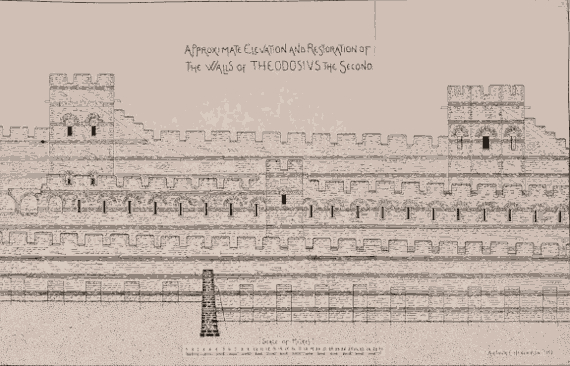 APPROXIMATE ELEVATION AND RESTORATION OF
THE WALLS OF THEODOSIVS THE SECOND
SCALE OF